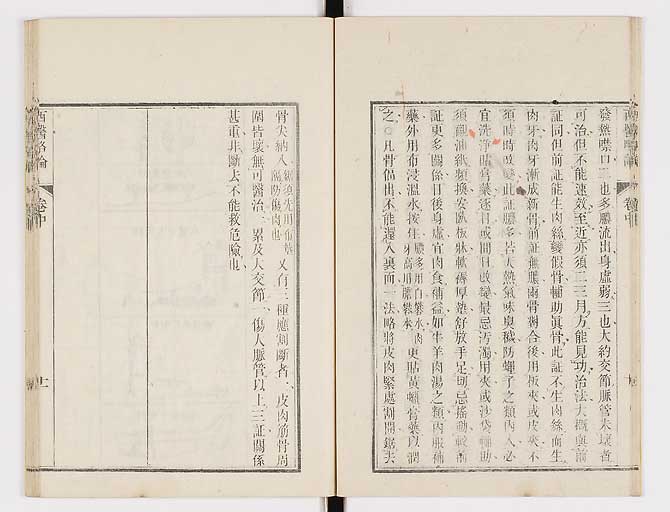 發熱噤口二也多膿流出身虛弱三也大約交節脈管未壞者
可治但不能速效至近亦須二三月方能見功治法大概與前
証同但前証能生肉絲變假骨輔助眞骨此証不生肉絲而生
肉牙肉牙漸成新骨前証無膿兩骨觸合後用板夾或皮夾不
須時時改變此証膿多若天熱氣味臭穢防蠅子之類內入必
宜洗淨貼膏藥逐日或間日改變最忌汚濁用夾或沙袋輔助
須觀油紙頻換安臥板牀軟褥厚墊舒放手足切忌搖動較前
証更多關係日後身虛宜肉食補益如牛羊肉湯之類內服補
藥外用布浸溫水按住膿多用白礬水肉牙高用膽礬水更貼黃蠟膏藥以潤
之○凡骨傷出不能還入裏面一法略將皮肉緊處割開鋸去
骨尖納入鋸須先用布墊隔防傷肉也又有三種應割斷者一皮肉筋骨周
圍皆壞無可醫治一累及大交節一傷人脈管以上三証關係
甚重非斷去不能救危險也
西醫略論
卷中
十一